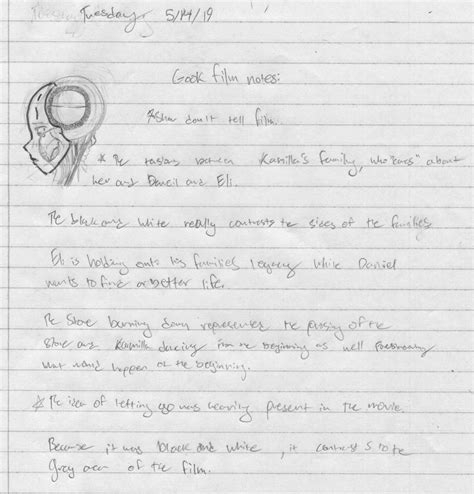 Tuesday 5/14/19
Gook film notes:
*Show don't tell film.
* The tensions between Kamilla's family, who "cares" about
her and Daneil and Eli.
The black and white really contrasts the sides of the families
Eli is holding onto his families legacy while Daniel
wants to find a better life.
The store burning down represents the passing of the
store and Kamilla dancing from the beginning as well
what would happen at the beginning.
* The idea of letting ego was heaving present in the movie.
Because it was black and white, it contrasts to the
grey area of the film.